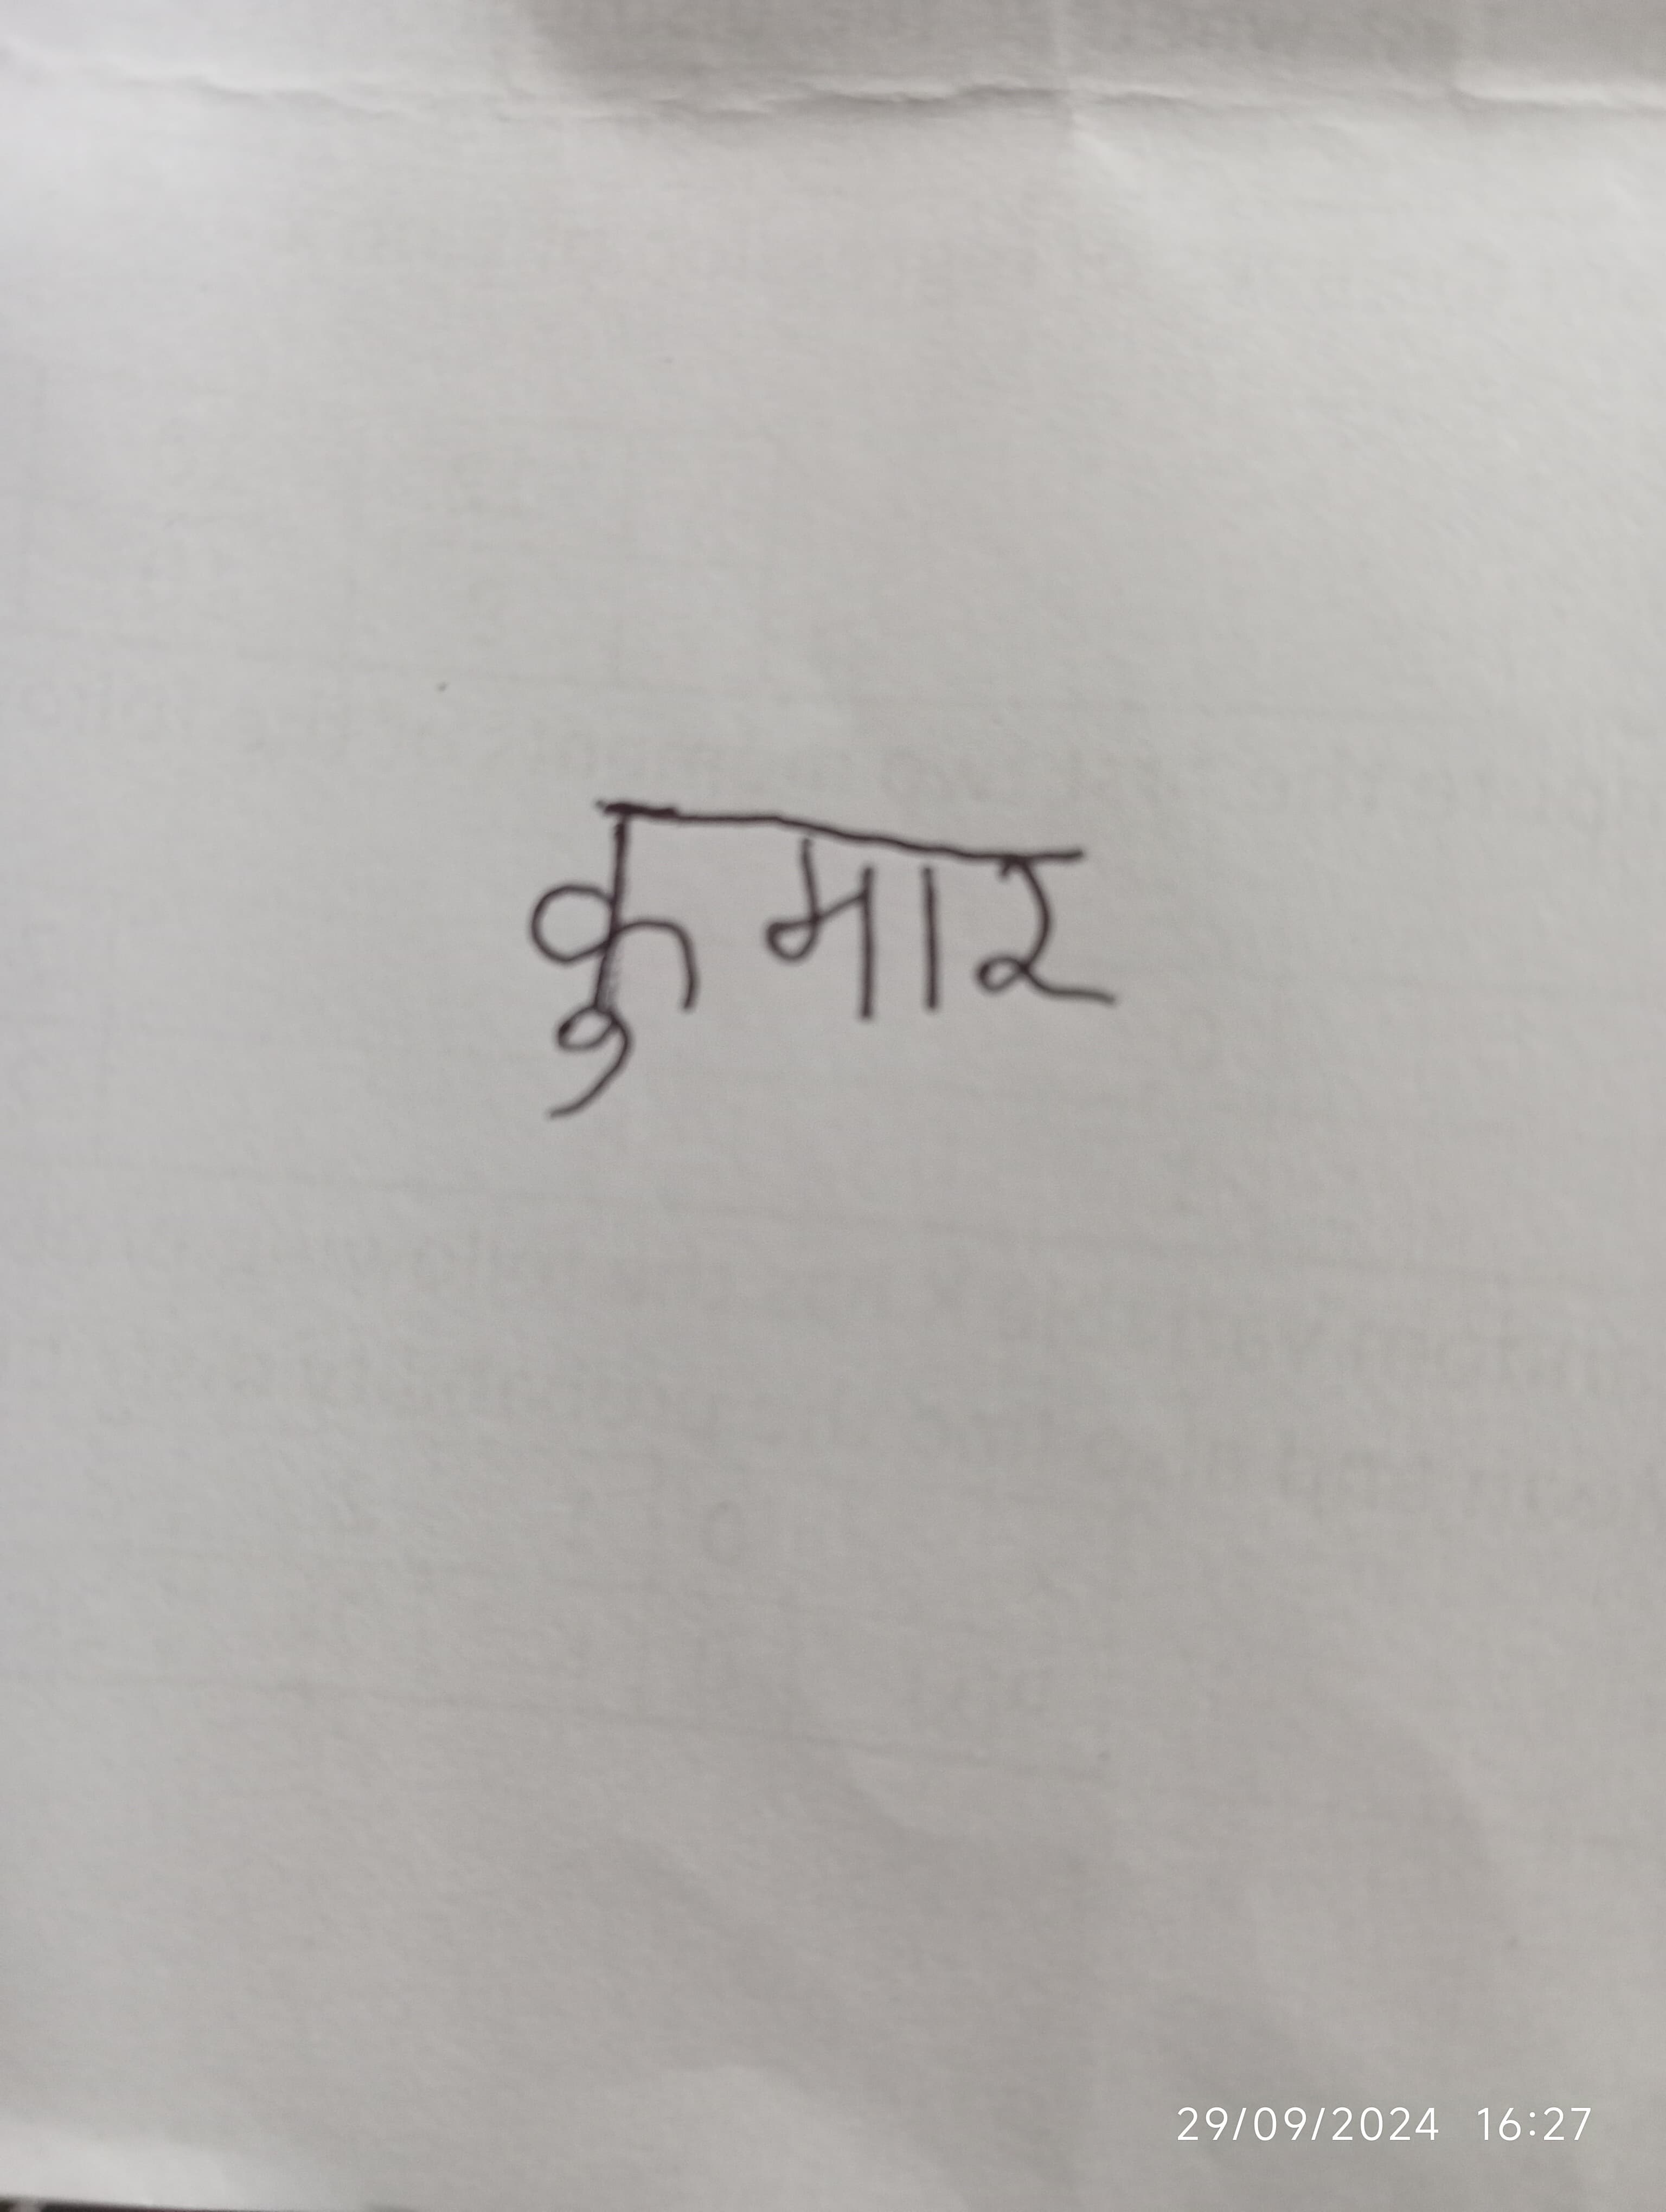 कुमार
29/09/2024 16:27